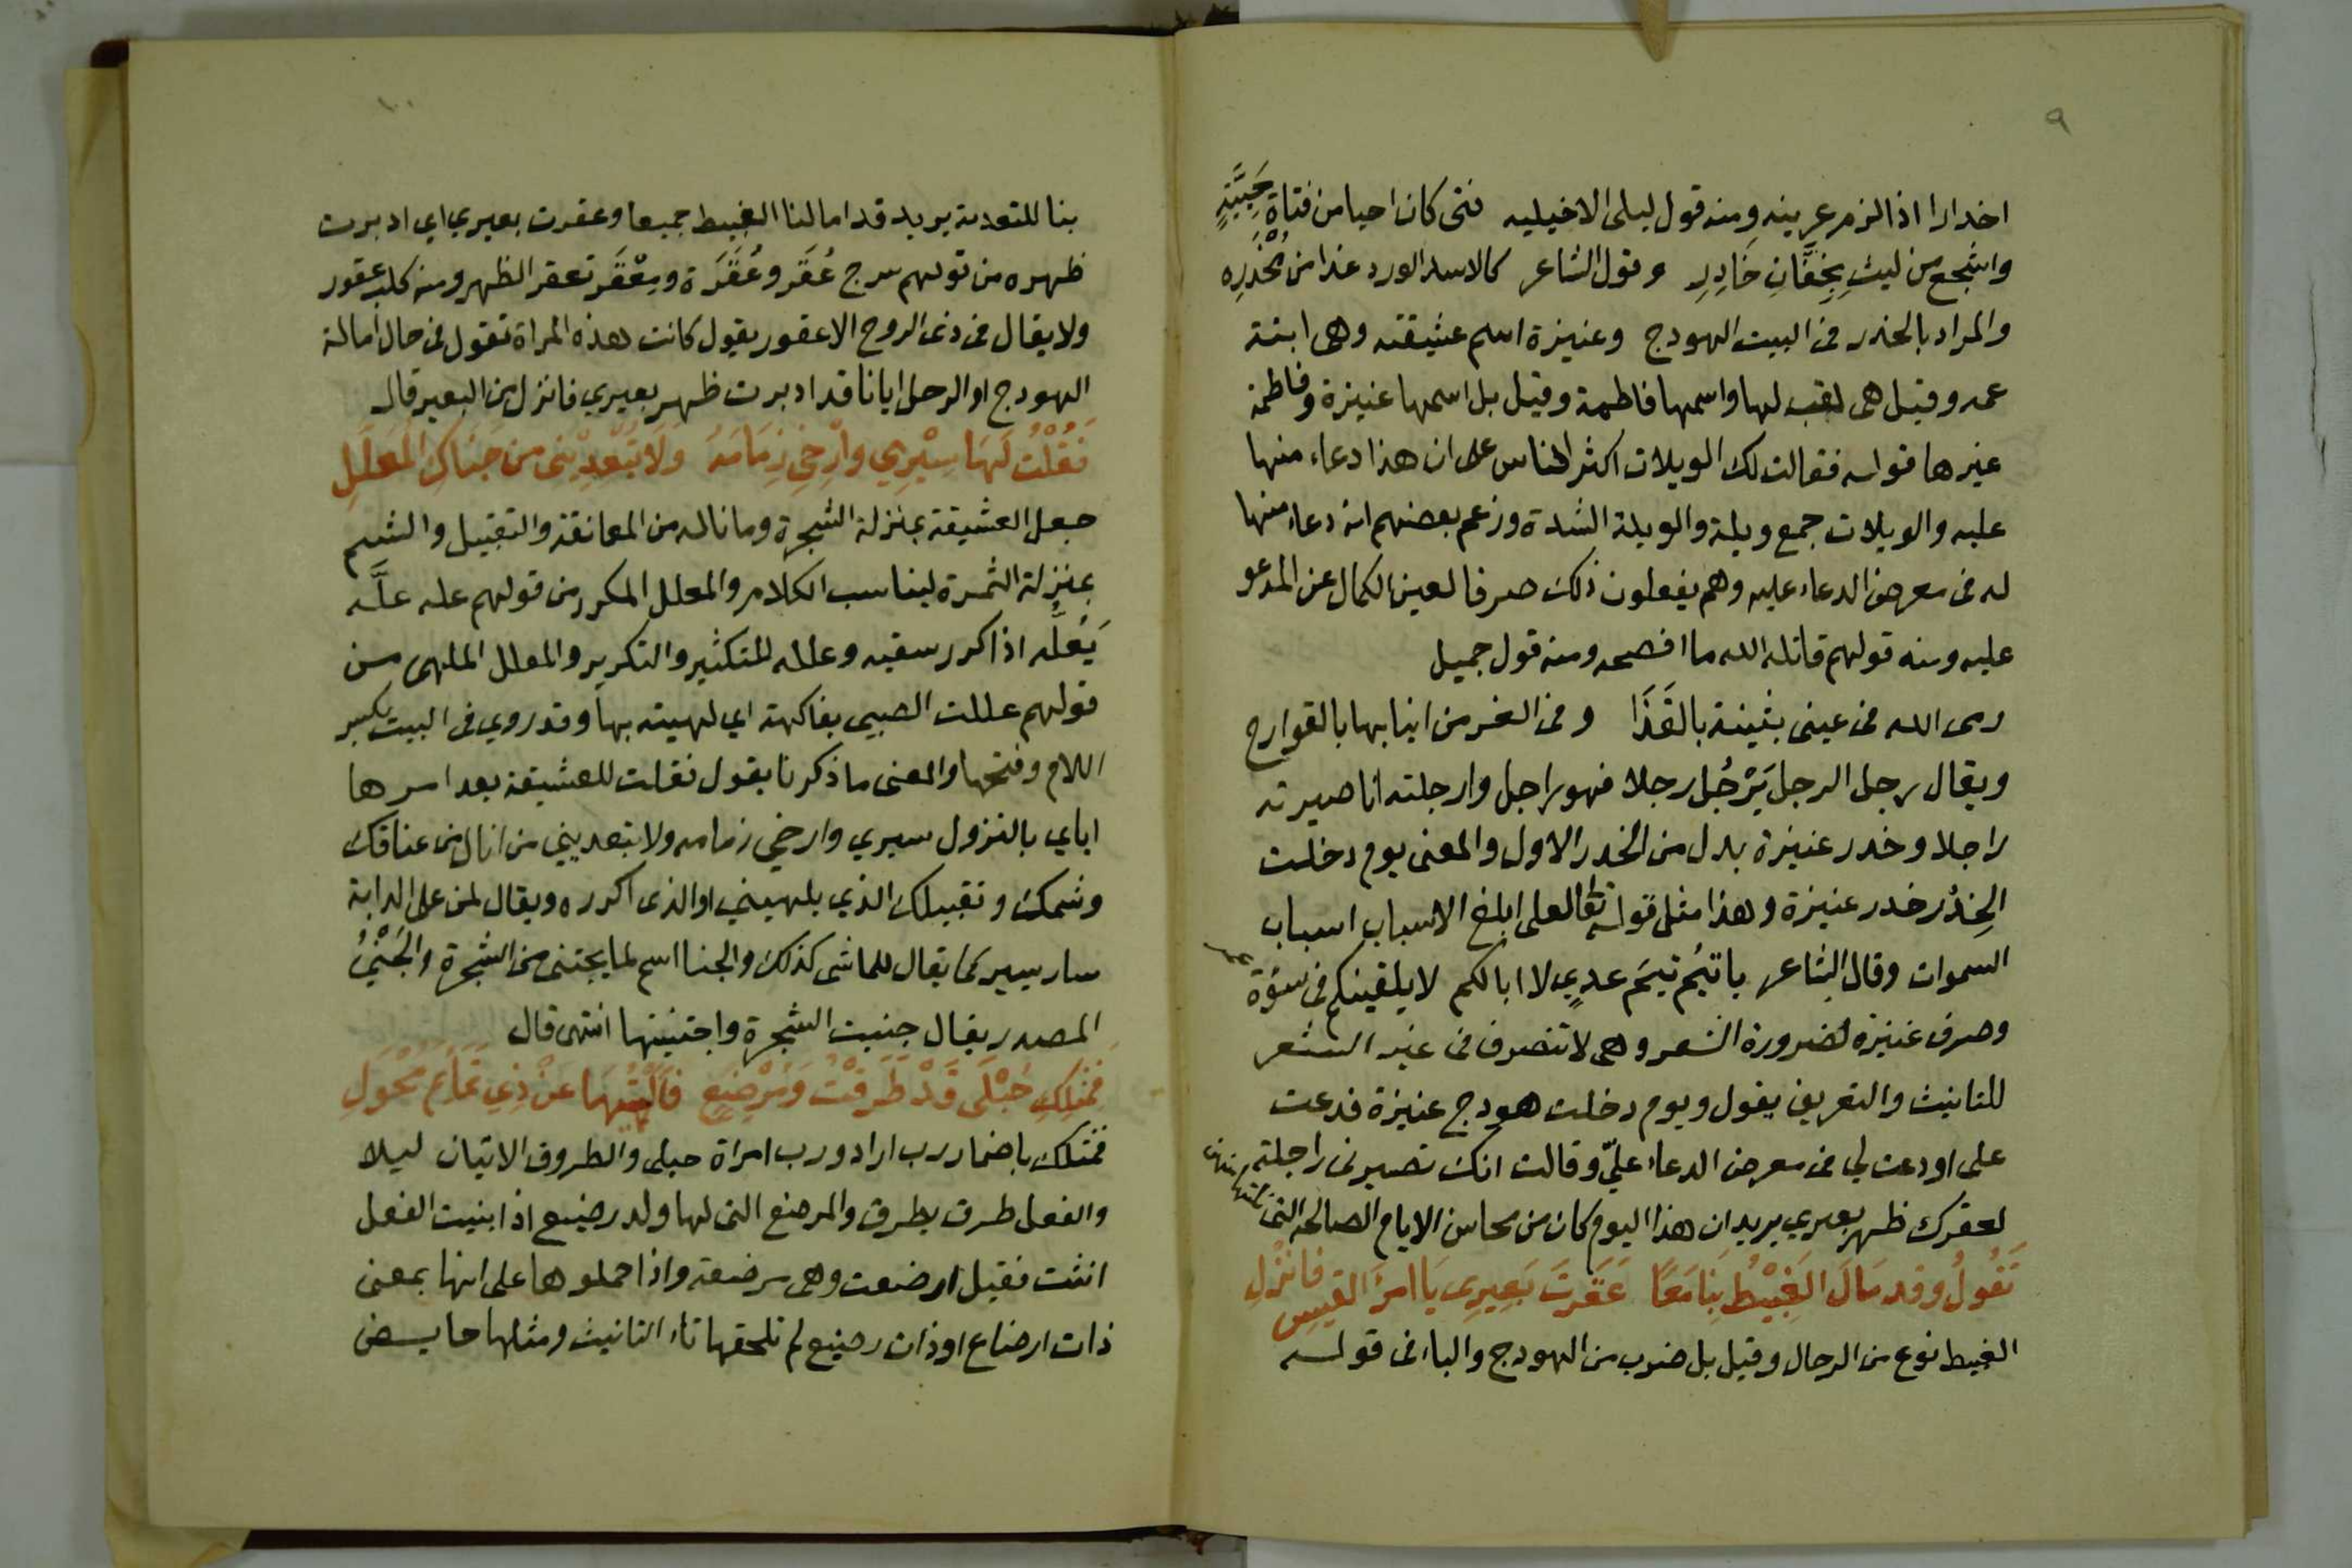 ٩
اخدارا اذا لزم عرينه ومنه قول ليلى الاخيليه فتى كان احيا من فتاة حَيِيَّةٍ
واشجع من ليثٍ بِخَفَّانِ خَادِرِ وقول الشاعر كالاسد الورد غدا من مُخْدَرِه
والمراد بالخدر فى البيت الهودج وعنيزة اسم عشيقته وهى ابنة
عمه وقيل هى لقب لها واسمها فاطمة وقيل بل اسمها عنيزة وفاطمة
غيرها قوله فقالت لك الويلات اكثر الناس على ان هذا دعاء منها
عليه والويلات جمع ويلة والويلة الشدة وزعم بعضهم انه دعاء منها
له فى معرض الدعاء عليه وهم يفعلون ذلك صرفا لعين الكمال عن المدعو
عليه ومنه قولهم قاتله الله ما افصحه ومنه قول جميل
رمى الله فى عينى بثينة بالقَذَا وفى الغر من انيابها بالقوارح
ويقال رجل الرجل يَرْجُل رجلا فهو راجل وارجلته انا صيرته
راجلا وخدر عنيزة بدل من الخدر الاول والمعنى يوم دخلت
الخِدْر خدر عنيزة وهذا مثل قوله تعالى لعلى ابلغ الاسباب اسباب
السموات وقال الشاعر يا تيُم تيمَ عديٍ لا ابا لكم لا يلقينكم فى سوْءة عمر
وصرف عنيزة لضرورة الشعر وهى لا تنصرف فى غير الشعر
للتانيث والتعريف يقول ويوم دخلت هودج عنيزة فدعت
على او دعت لي فى معرض الدعاء عليّ وقالت انك تصيرنى راجلة
لعقرك ظهر بعيري يريد ان هذا اليوم كان من محاسن الايام الصالحه التى نلتها منهن
تَقُولُ وقد مَالَ الغَبِيْطُ بِنَا مَعًا عَقَرتَ بَعِيرِي يَا امرَأَ القيسِ فانزلِ
الغبيط نوع من الرحال وقيل بل ضرب من الهودج والباء فى قوله
١٠
بنا للتعدية يريد قد امالنا الغبيط جميعا وعقرت بعيري اي ادبرت
ظهره من قولهم سرج عُقَر وعُقَرَة ومِعْقَر تعقر الظهر ومنه كلب عقور
ولا يقال فى ذى الروح الا عقور يقول كانت هذه المراة تقول فى حال امالة
الهودج او الرحل ايانا قد ادبرت ظهر بعيري فانزل من البعير قال
فَقُلْتُ لَهَا سِيْرِي وارْخِي زِمَامَهُ وَلَا تُبْعِدِيْنِى من جَنَاكِ المُعَلَّلِ
جعل العشيقة بمنزلة الشجرة وما ناله من المعانقة والتقبيل والشم
بمنزلة الثمرة ليناسب الكلام والمعلل المكرر من قولهم عله علَّه
يَعُلُّه اذا كرر سقيه وعلله للتكثير والتكرير والمعلل الملهى من
قولهم عللت الصبي بفاكهة اي لهيته بها وقد روي فى البيت بكسر
اللام وفتحها والمعنى ما ذكرنا يقول فقلت للعشيقة بعد امرها
اياي بالنزول سيري وارخي زمامه ولا تبعديني من انال من عناقك
وشمك وتقبيلك الذي يلهيني او الذى اكرره ويقال لمن على الدابة
سار يسير كما يقال للماشى كذلك والجنا اسم لما يجتنى من الشجرة والجَنْيُ
المصدر يقال جنيت الشجرة واجتنيتها انتهى قال
فَمِثلِكِ حُبْلَى قَدْ طَرَقْتُ وَمُرْضِعٍ فَالْهَيْتُهَا عَنْ ذِي تَمَائِمَ مُحْوَلِ
فمثلك باضمار رب اراد ورب امراة حبلى والطروق الاتيان ليلا
والفعل طرق يطرق والمرضع التى لها ولد رضيع اذا بنيت الفعل
انثت فقيل ارضعت وهى مرضعة واذا حملوها على انها بمعنى
ذات ارضاع او ذات رضيع لم تلحقها تاء التانيث ومثلها حايض